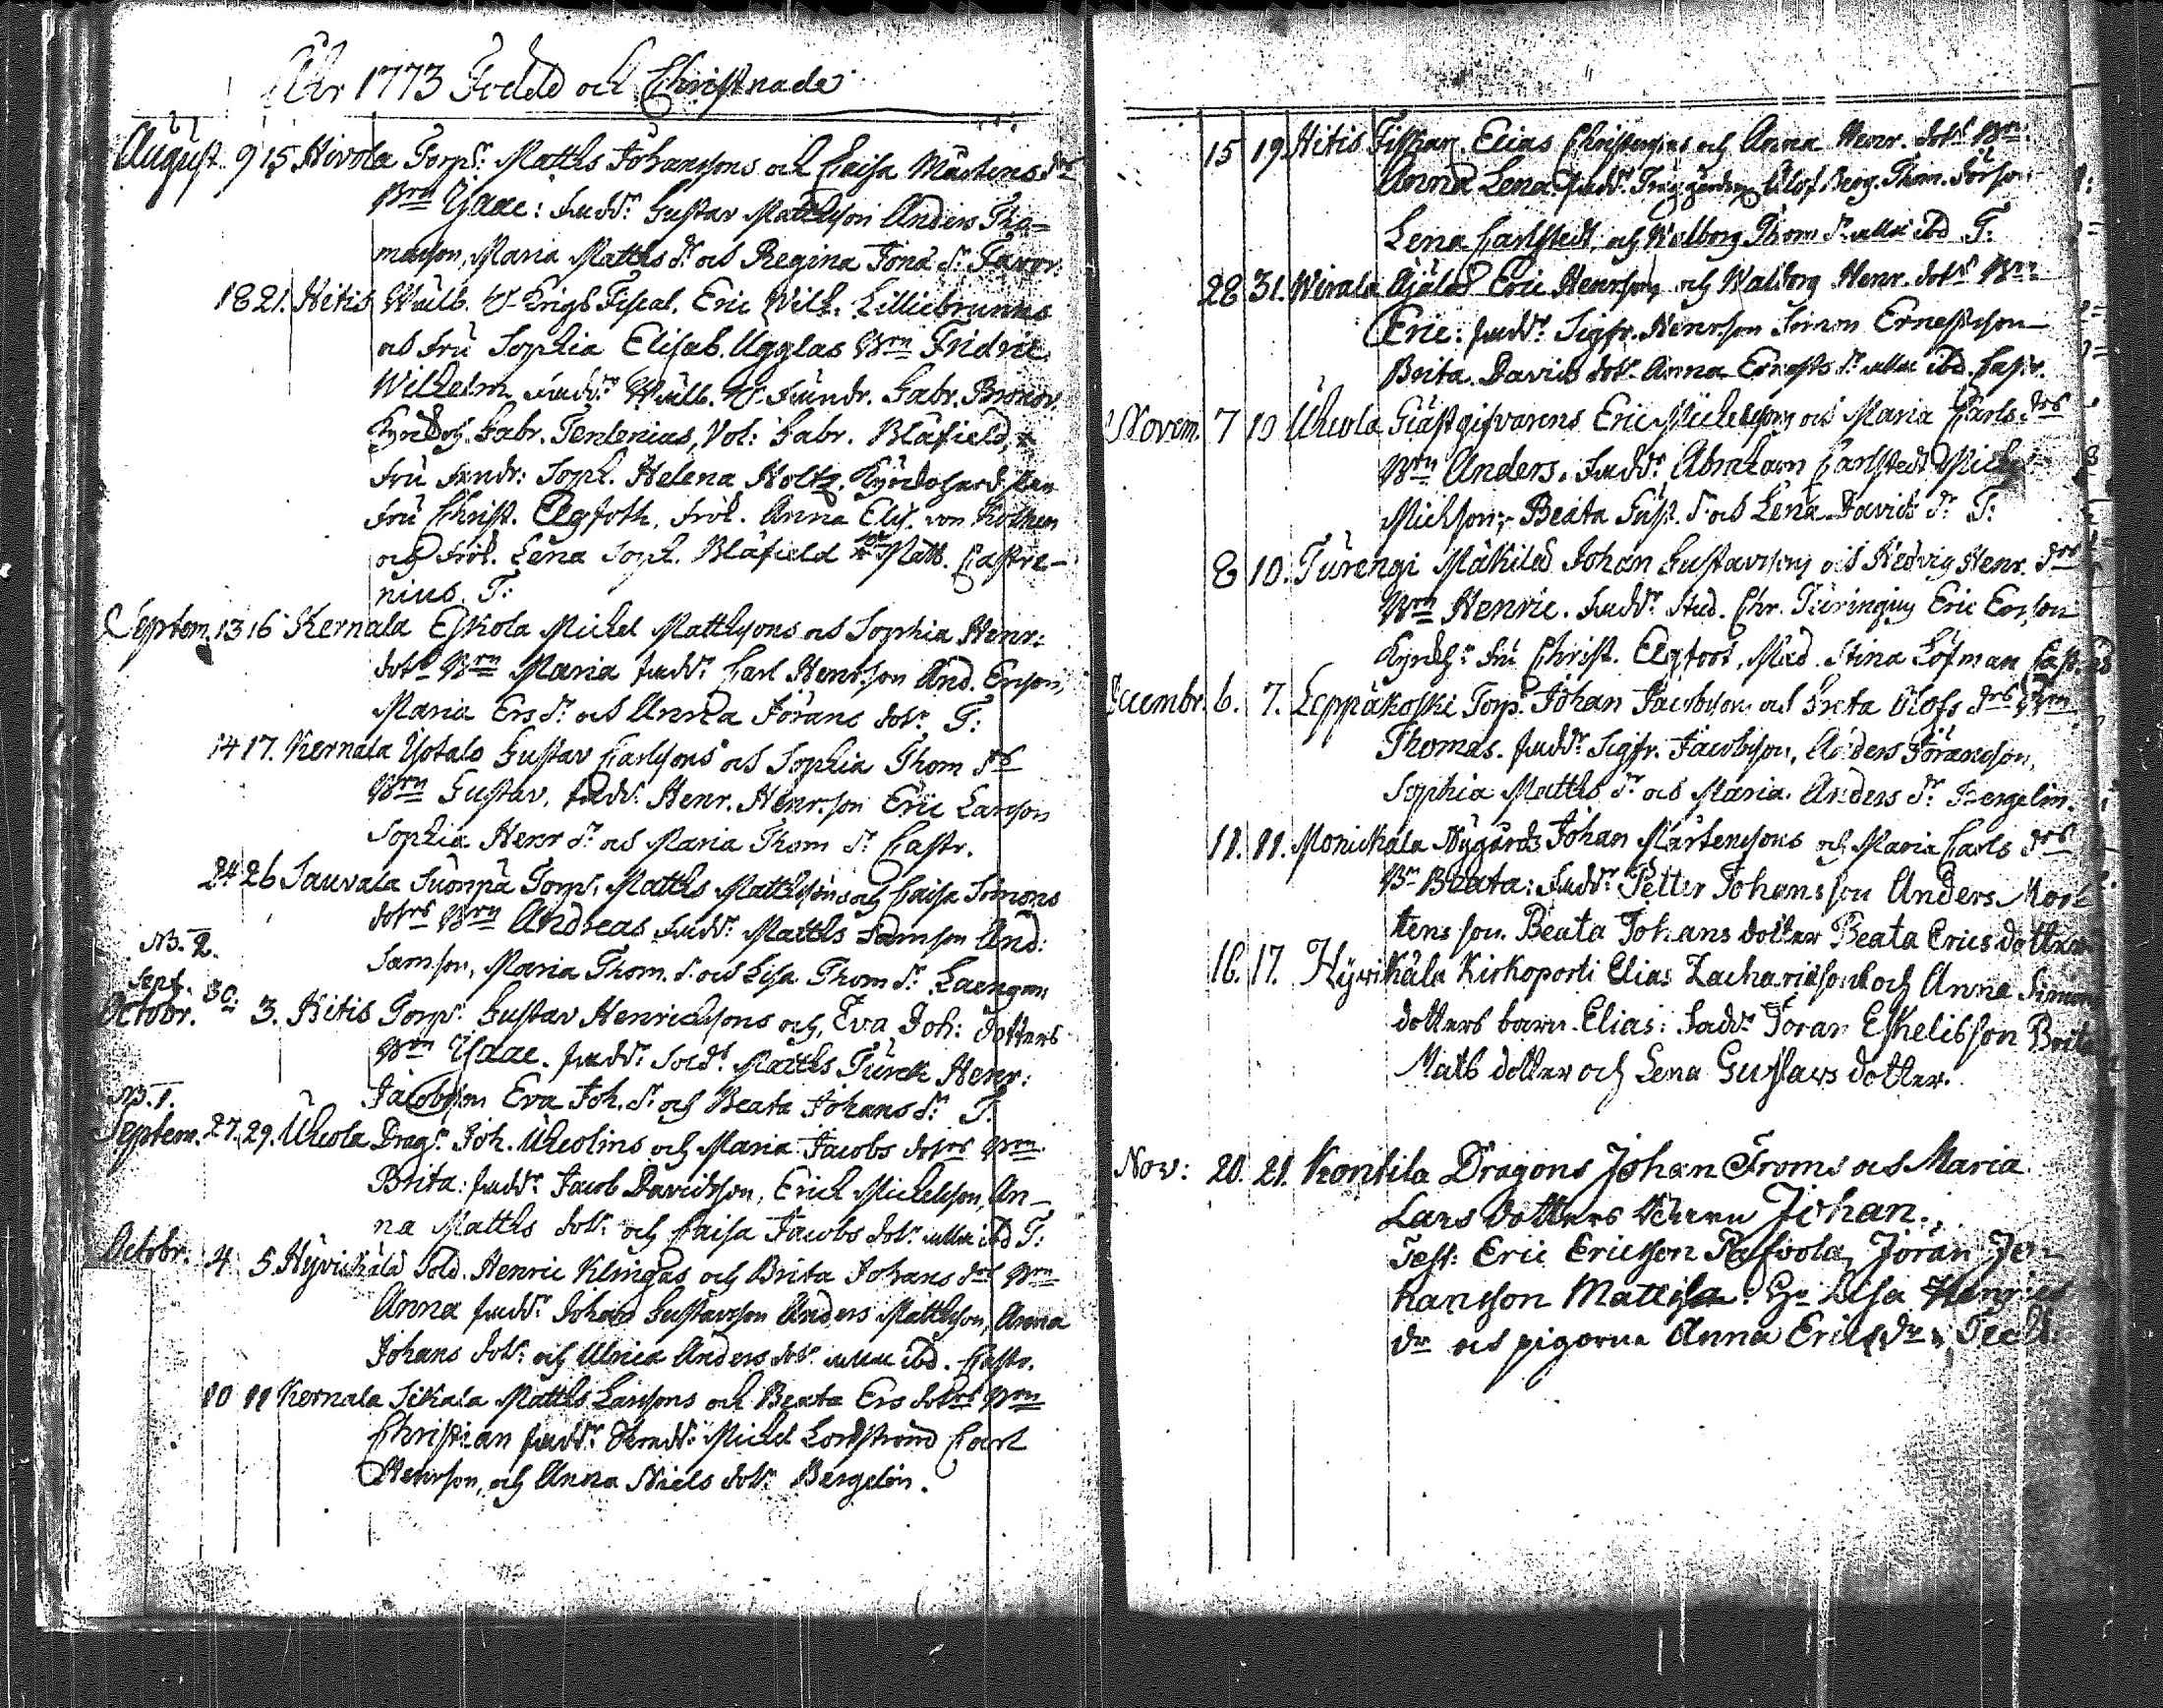 Åhr 1773 Födde och Christnade
August 9 15 Hivola Torp:r Matths Johanssons och Caisa Mårtens d:rs
B:rn Isaac: fadd:r Gustav Matthsson Anders Tho=
masson, Maria Matths d:r och Regina Jona d:r
18 21. Hitis Wälb. Krigs Fiscal. Eric Wilh. Lilliebrunns
och Fru Sophia Elisab. Ugglas B:rn Fridric
Wilhelm fadd:r Wälb. Gabr. Bronov
Gabr. Tenlenius, Vol: Gabr. Blåfield,
Fru Soph. Helena Holtz.
Fru Christ. Elgfoth, Fröl. Anna Elis. von Kothen
och Fröl. Lena Soph. Blåfield Matth. Castre-
nius. T:
Septem. 13 16 Kernala Eskola Michel Matthsons och Sophia Henr:
dot:rs B:rn Maria fadd:r Carl Henr.son And. Erson,
Maria Ers d:r och Anna Jörans dot:r T:
14 17. Kernala Ystalo Gustav Carlsons och Sophia Thom d:rs
B:rn Gustav, fadd:r Henr. Henr.son Eric Larsson
Sophia Henr d:r och Maria Thom d:r Castr.
24 26 Sauvala Suonpä Torp:r Matths Matthssons och Caisa Simons
dot:rs B:rn Andreas fadd:r Matths Samson And:
Samson, Maria Thom. d:r och Lisa Thom d:r
NB. 2.
Sept. 30:
Octobr. 3. Hitis Torp:r Gustav Henricssons och Eva Joh: dotters
B:rn Isaac. fadd:r Sold:t Matths Turck Henr:
Jacobsson Eva Joh. d:r och Beata Johans d:r T.
NB. 1.
Septem. 27. 29. Uhcola Drag:n Joh. Uhcolins och Maria Jacobs dot:rs B:rn
Brita: fadd:r Jacob Davidsson, Erich Michelsson, An-
na Matths dot:r och Caisa Jacobs dot:r ibd T:
Octobr. 4 5. Hyvickälä Sold. Henric Klingas och Brita Johans d:rs B:rn
Anna fadd:r Johan Gustavsson Anders Matthsson, Anna
Johans dot:r och Ulrica Anders dot:r ibd. Castr.
10 11 Kernala Sikala Matths Larssons och Beata Ers dot:rs B:rn
Christian fadd:r Michel Lordstrand Carl
Henrson, och Anna Niels dot:r Bergelin.
15 19. Hitis Elias Christerssons och Anna Henr. dot:rs B:rn
Anna Lena: fadd:r Olof Berg. Thom. Jörson
Lena Carlstedt, och Walborg Thom d:r ibd T:
28 31. Wirala Äjälä Eric Henrsons och Walborg Henr. dot:rs B:rn
Eric: fadd:r Sigfr. Henrson Simon Ernestsson
Brita Davids dot:r Anna Ernests d:r ibd. Castr.
Novem. 7 10 Uhcola Gästgifvarens Eric Michelssons och Maria Carls d:rs
B:rn Anders. fadd:r Abraham Carlstedt
Michson: Beata Gust. d:r och Lena Davids d:r T:
8 10. Turengi Mäkilä Johan Gustavssons och Hedvig Henr. d:rs
B:rn Henric. fadd:r Stud. Chr. Turingius Eric Erson
Fru Christ. Elgfoot, Mad. Stina Löfman
Decembr. 6. 7. Leppäkoski Torp:r Johan Jacobsson och Greta Olofs d:rs B:rn
Thomas. fadd:r Sigfr. Jacobsson, Anders Jöransson,
Sophia Matths d:r och Maria Anders d:r Bergelin.
11. 11. Monickala Nygårds Johan Mårtenssons och Maria Carls d:rs
B:n Beata: fadd:r Petter Johansson Anders Mor
tensson Beata Johans dotter Beata Erics dotter
16. 17. Hyvikälä Kirkoporti Elias Zacharissons och Anna Simons
dotters barn Elias: fadd:r Joran Eskelisson Brita
Mats dotter och Lena Gustavs dotter.
Nov: 20. 21. Kontila Dragons Johan Froms och Maria
Lars dotters Johan.
Test: Eric Ericsson Joran Jo
hansson Mattila: Lisa Henrics
d:r och pigorna Anna Erics d:r